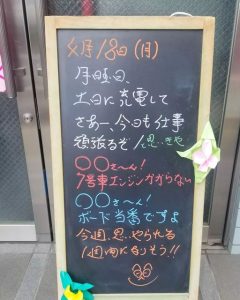 4月18日(月)
月曜日、
土日に充電して
さあー、今日も仕事
頑張るぞ!と思いきや
〇〇さ〜ん!
7号車エンジンかからない
〇〇さ〜ん!
ボード当番ですよ
今週、思いやられる
1週間になりそう!!